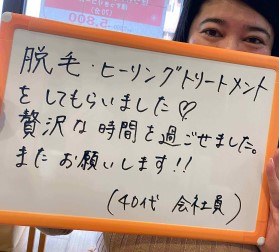 ¥5,800
脱毛・ヒーリングトリートメント
をしてもらいました♡
贅沢な時間を過ごせました。
またお願いします!!
(40代 会社員)